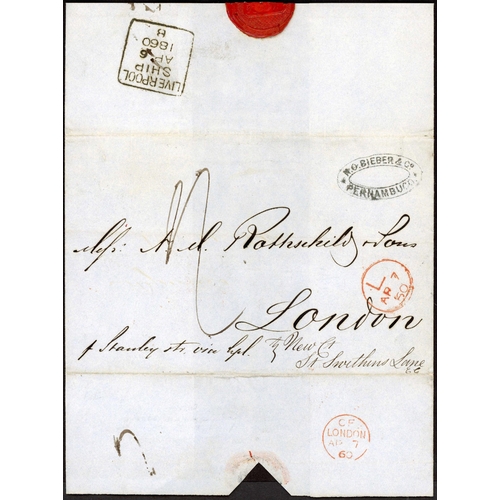 LIVERPOOL
SHIP
AP 6
1860
B
N.O. BIEBER & Co
PERNAMBUCO
Messrs N. M. Rothschild & Sons
L
AP 7
60
London
p Stanley str. via Lpl.
New Ct
St Swithins Lane
EC
CF
LONDON
AP 7
60